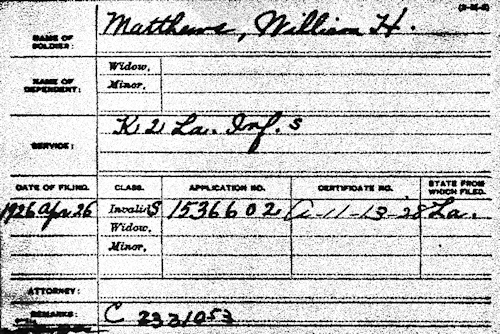 (3-M-2)
NAME OF SOLDIER: Matthews, William H.
NAME OF DEPENDENT: Widow,
Minor,
SERVICE: K 2 La. Inf. S
DATE OF FILING. CLASS. APPLICATION NO. CERTIFICATE NO. STATE FROM WHICH FILED.
1926 Apr 26 Invalid, S 1536602 A-11-13-28 La.
Widow,
Minor,
ATTORNEY:
REMARKS: C 2331053